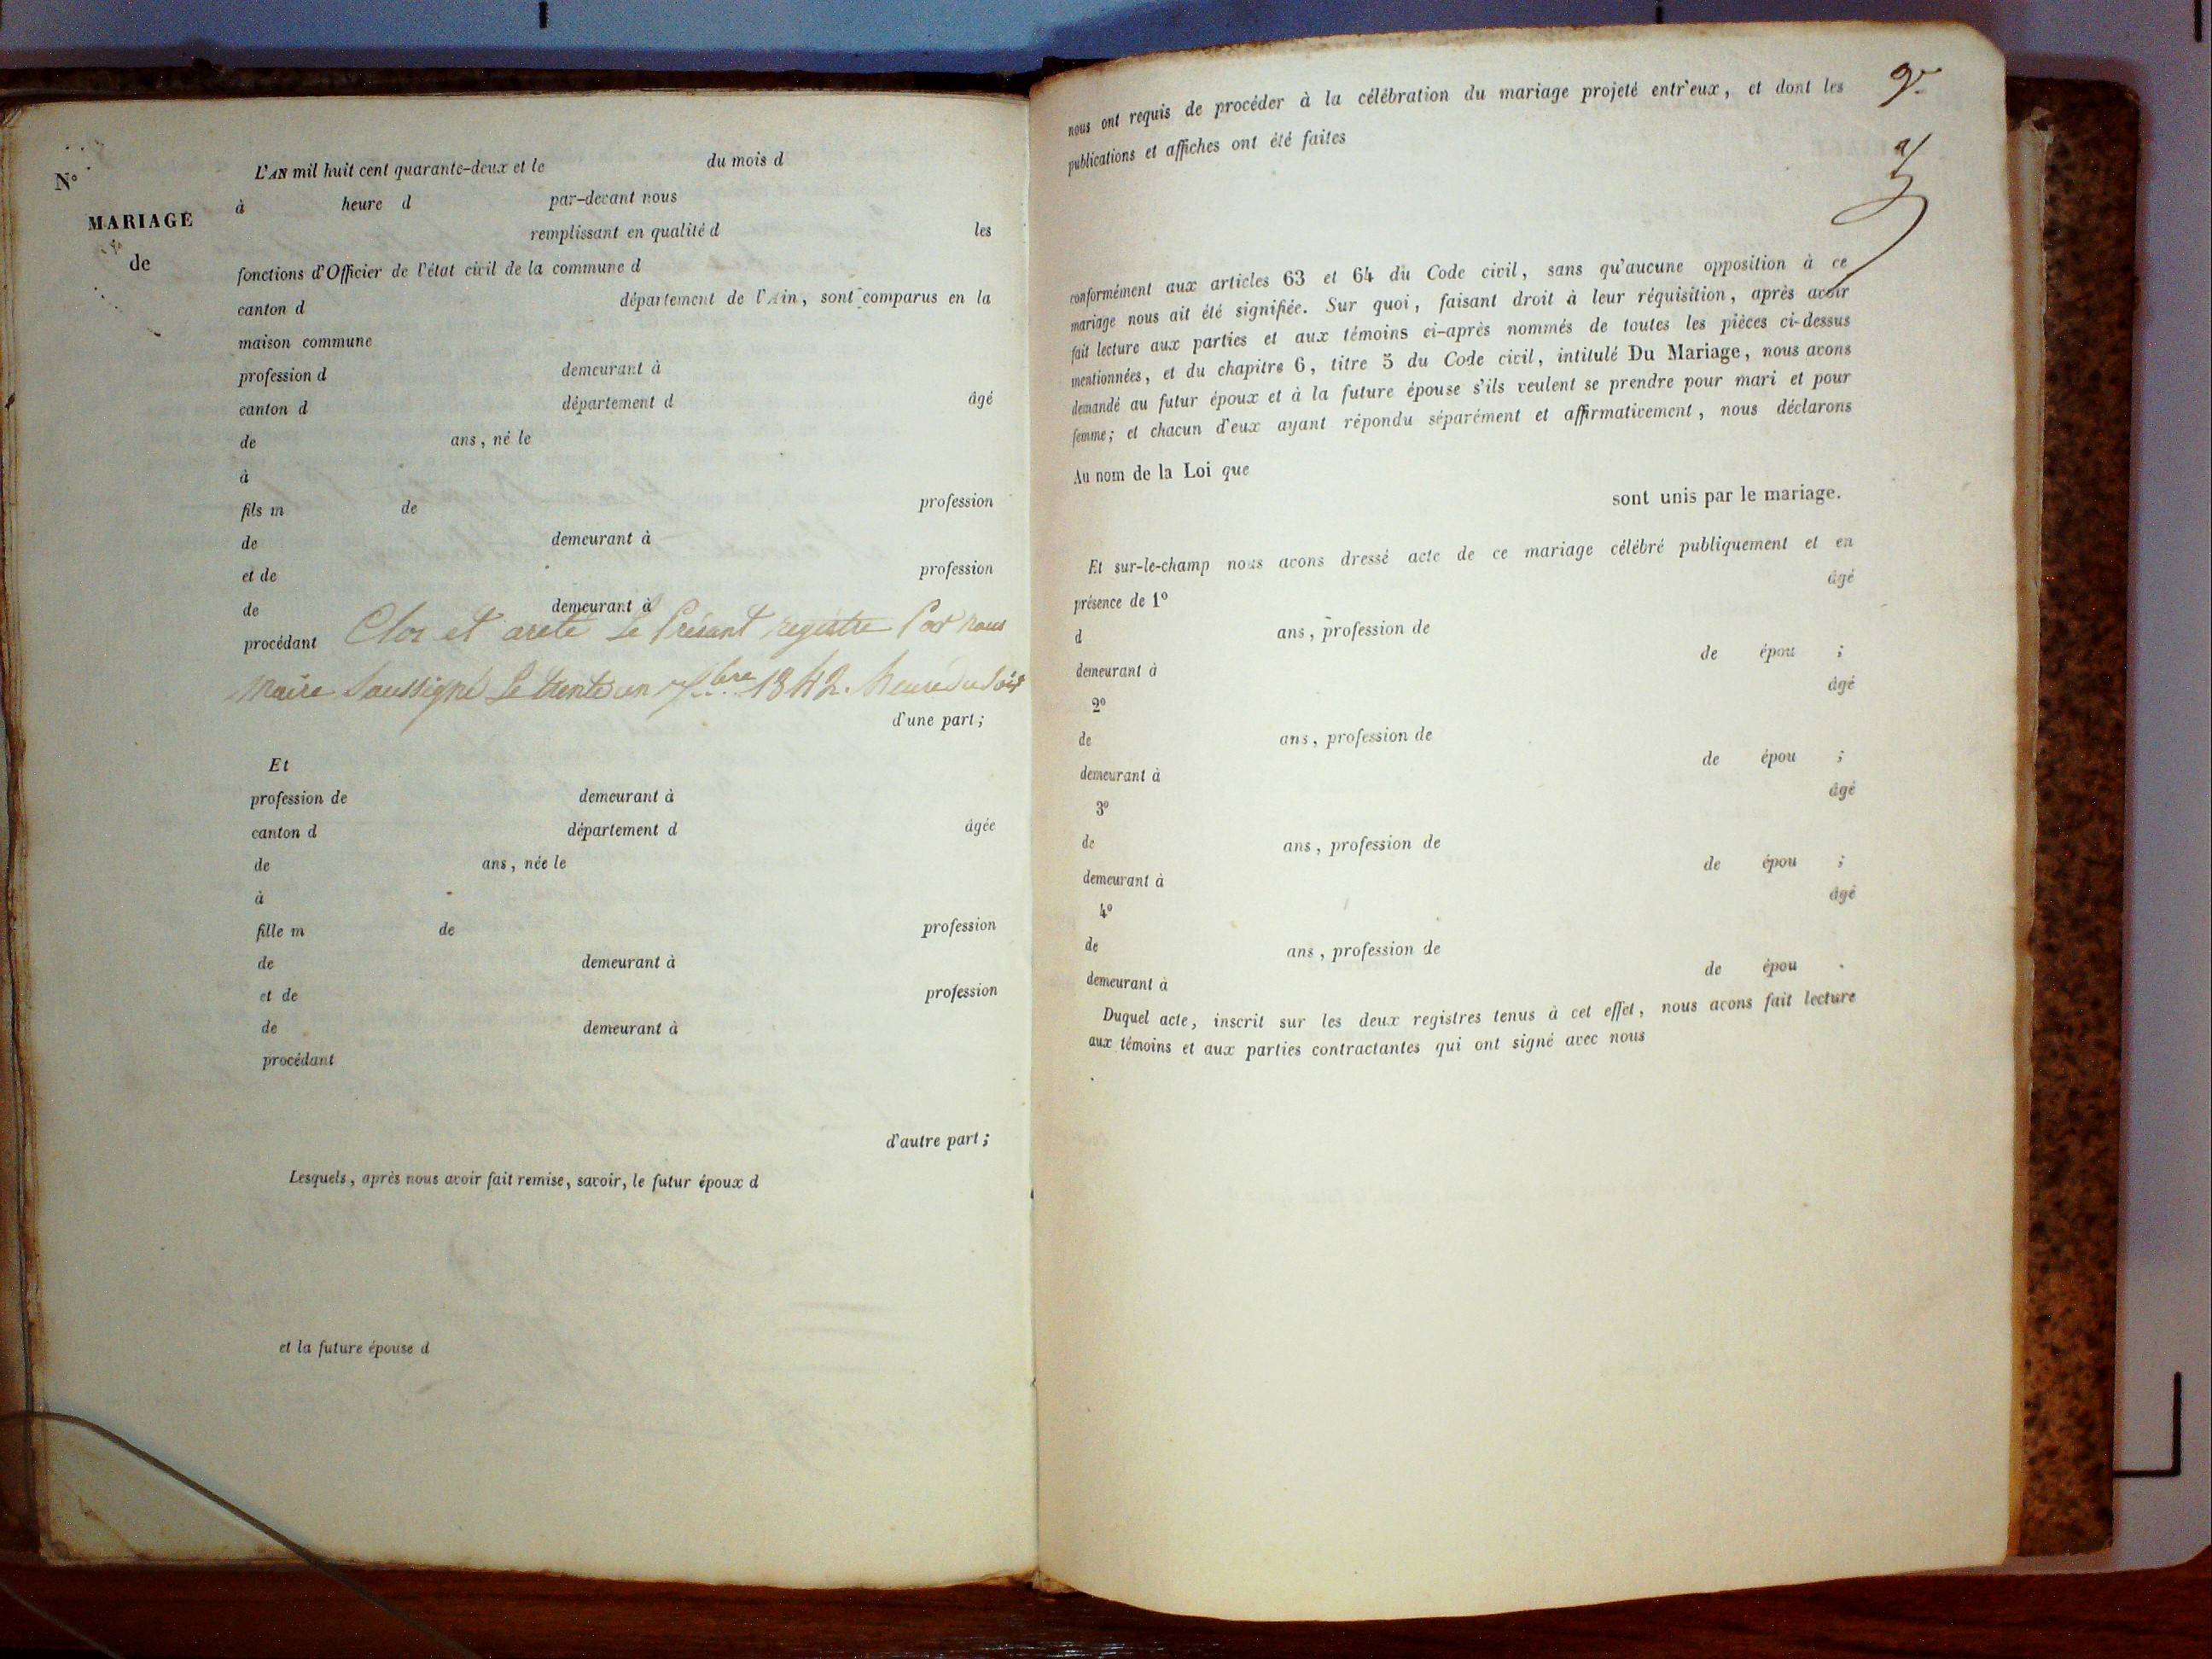 N°
MARIAGE
de
L'AN mil huit cent quarante-deux et le du mois d
à heure d par-devant nous
remplissant en qualité d les
fonctions d'Officier de l'état civil de la commune d
canton d département de l'Ain, sont comparus en la
maison commune
profession d demeurant à
canton d département d âgé
de ans, né le
à
fils m de profession
de demeurant à
et de profession
de demeurant à
procédant Clos et areté Le Présant registre Par nous
Maire Soussigné Le trente un 1842. heure du Soir
d'une part;
Et
profession de demeurant à
canton d département d âgée
de ans, née le
à
fille m de profession
de demeurant à
et de profession
de demeurant à
procédant
d'autre part;
Lesquels, après nous avoir fait remise, savoir, le futur époux d
et la future épouse d
nous ont requis de procéder à la célébration du mariage projeté entr'eux, et dont les
publications et affiches ont été faites
conformément aux articles 63 et 64 du Code civil, sans qu'aucune opposition à ce
mariage nous ait été signifiée. Sur quoi, faisant droit à leur réquisition, après avoir
fait lecture aux parties et aux témoins ci-après nommés de toutes les pièces ci-dessus
mentionnées, et du chapitre 6, titre 5 du Code civil, intitulé Du Mariage, nous avons
demandé au futur époux et à la future épouse s'ils veulent se prendre pour mari et pour
femme; et chacun d'eux ayant répondu séparément et affirmativement, nous déclarons
Au nom de la Loi que
sont unis par le mariage.
Et sur-le-champ nous avons dressé acte de ce mariage célébré publiquement et en
présence de 1° âgé
d ans, profession de
demeurant à de épou ;
2° âgé
de ans, profession de
demeurant à de épou ;
3° âgé
de ans, profession de
demeurant à de épou ;
4° âgé
de ans, profession de
demeurant à de épou .
Duquel acte, inscrit sur les deux registres tenus à cet effet, nous avons fait lecture
aux témoins et aux parties contractantes qui ont signé avec nous